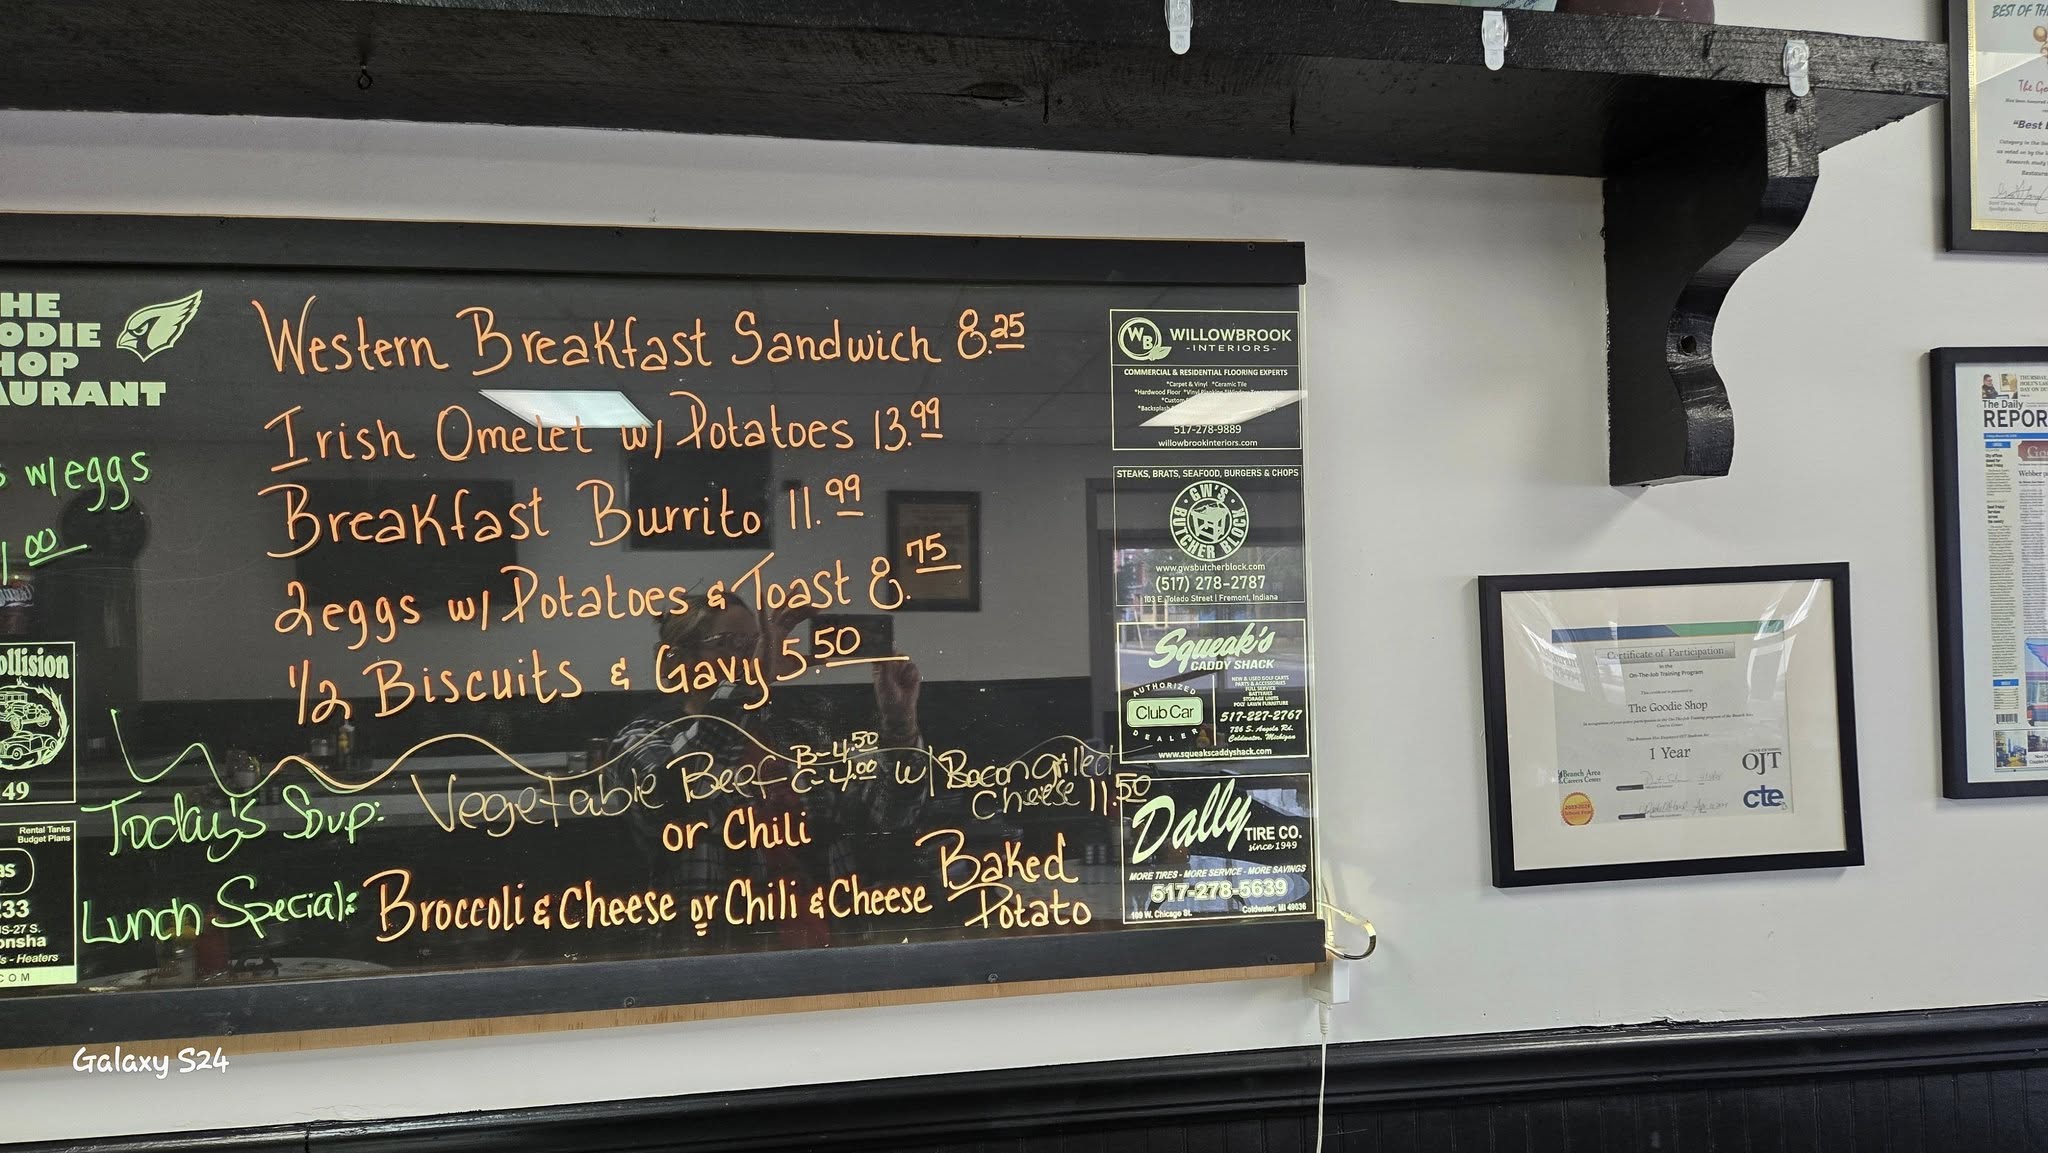 HE
ODIE
HOP
AURANT
w/eggs
.00
ollision
49
Rental Tanks
Budget Plans
as
33
US-27 S.
onsha
s - Heaters
COM
Western Breakfast Sandwich 8.25
Irish Omelet w/ Potatoes 13.99
Breakfast Burrito 11.99
2 eggs w/ Potatoes & Toast 8.75
1/2 Biscuits & Gavy 5.50
Today's Soup: Vegetable Beef B-4.50 C-4.00 w/ Bacon Grilled Cheese 11.50
or Chili
Lunch Special: Broccoli & Cheese or Chili & Cheese Baked Potato
WB WILLOWBROOK
-INTERIORS-
COMMERCIAL & RESIDENTIAL FLOORING EXPERTS
*Carpet & Vinyl *Ceramic Tile
*Hardwood Floor
517-278-9889
willowbrookinteriors.com
STEAKS, BRATS, SEAFOOD, BURGERS & CHOPS
GW'S BUTCHER BLOCK
www.gwsbutcherblock.com
(517) 278-2787
103 E. Toledo Street | Fremont, Indiana
Squeak's
CADDY SHACK
NEW & USED GOLF CARTS
PARTS & ACCESSORIES
FULL SERVICE
BATTERIES
STORAGE UNITS
POLY LAWN FURNITURE
AUTHORIZED
Club Car
DEALER
517-227-2767
726 S. Angola Rd.
Coldwater, Michigan
www.squeakscaddyshack.com
Dally
TIRE CO.
since 1949
MORE TIRES - MORE SERVICE - MORE SAVINGS
517-278-5639
109 W. Chicago St. Coldwater, MI 49036
BEST OF TH
The Go
"Best
Certificate of Participation
in the
On-The-Job Training Program
This certificate is presented to
The Goodie Shop
1 Year
Branch Area
Careers Center
OJT
cte
The Daily
REPOR
Galaxy S24